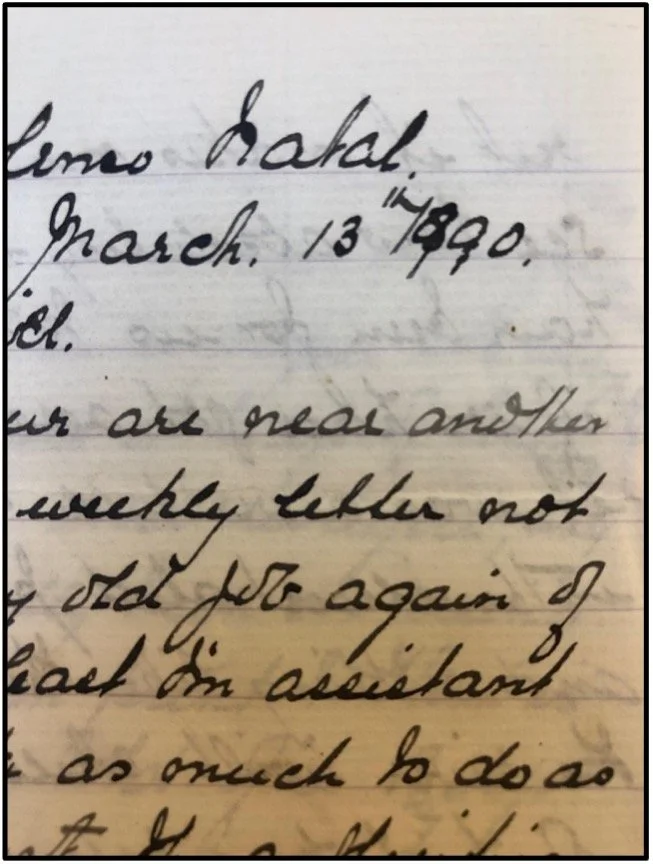 lenso Natal.
March. 13th 1890.
we are near another
weekly letter not
y old job again of
least I'm assistant
as much to do as